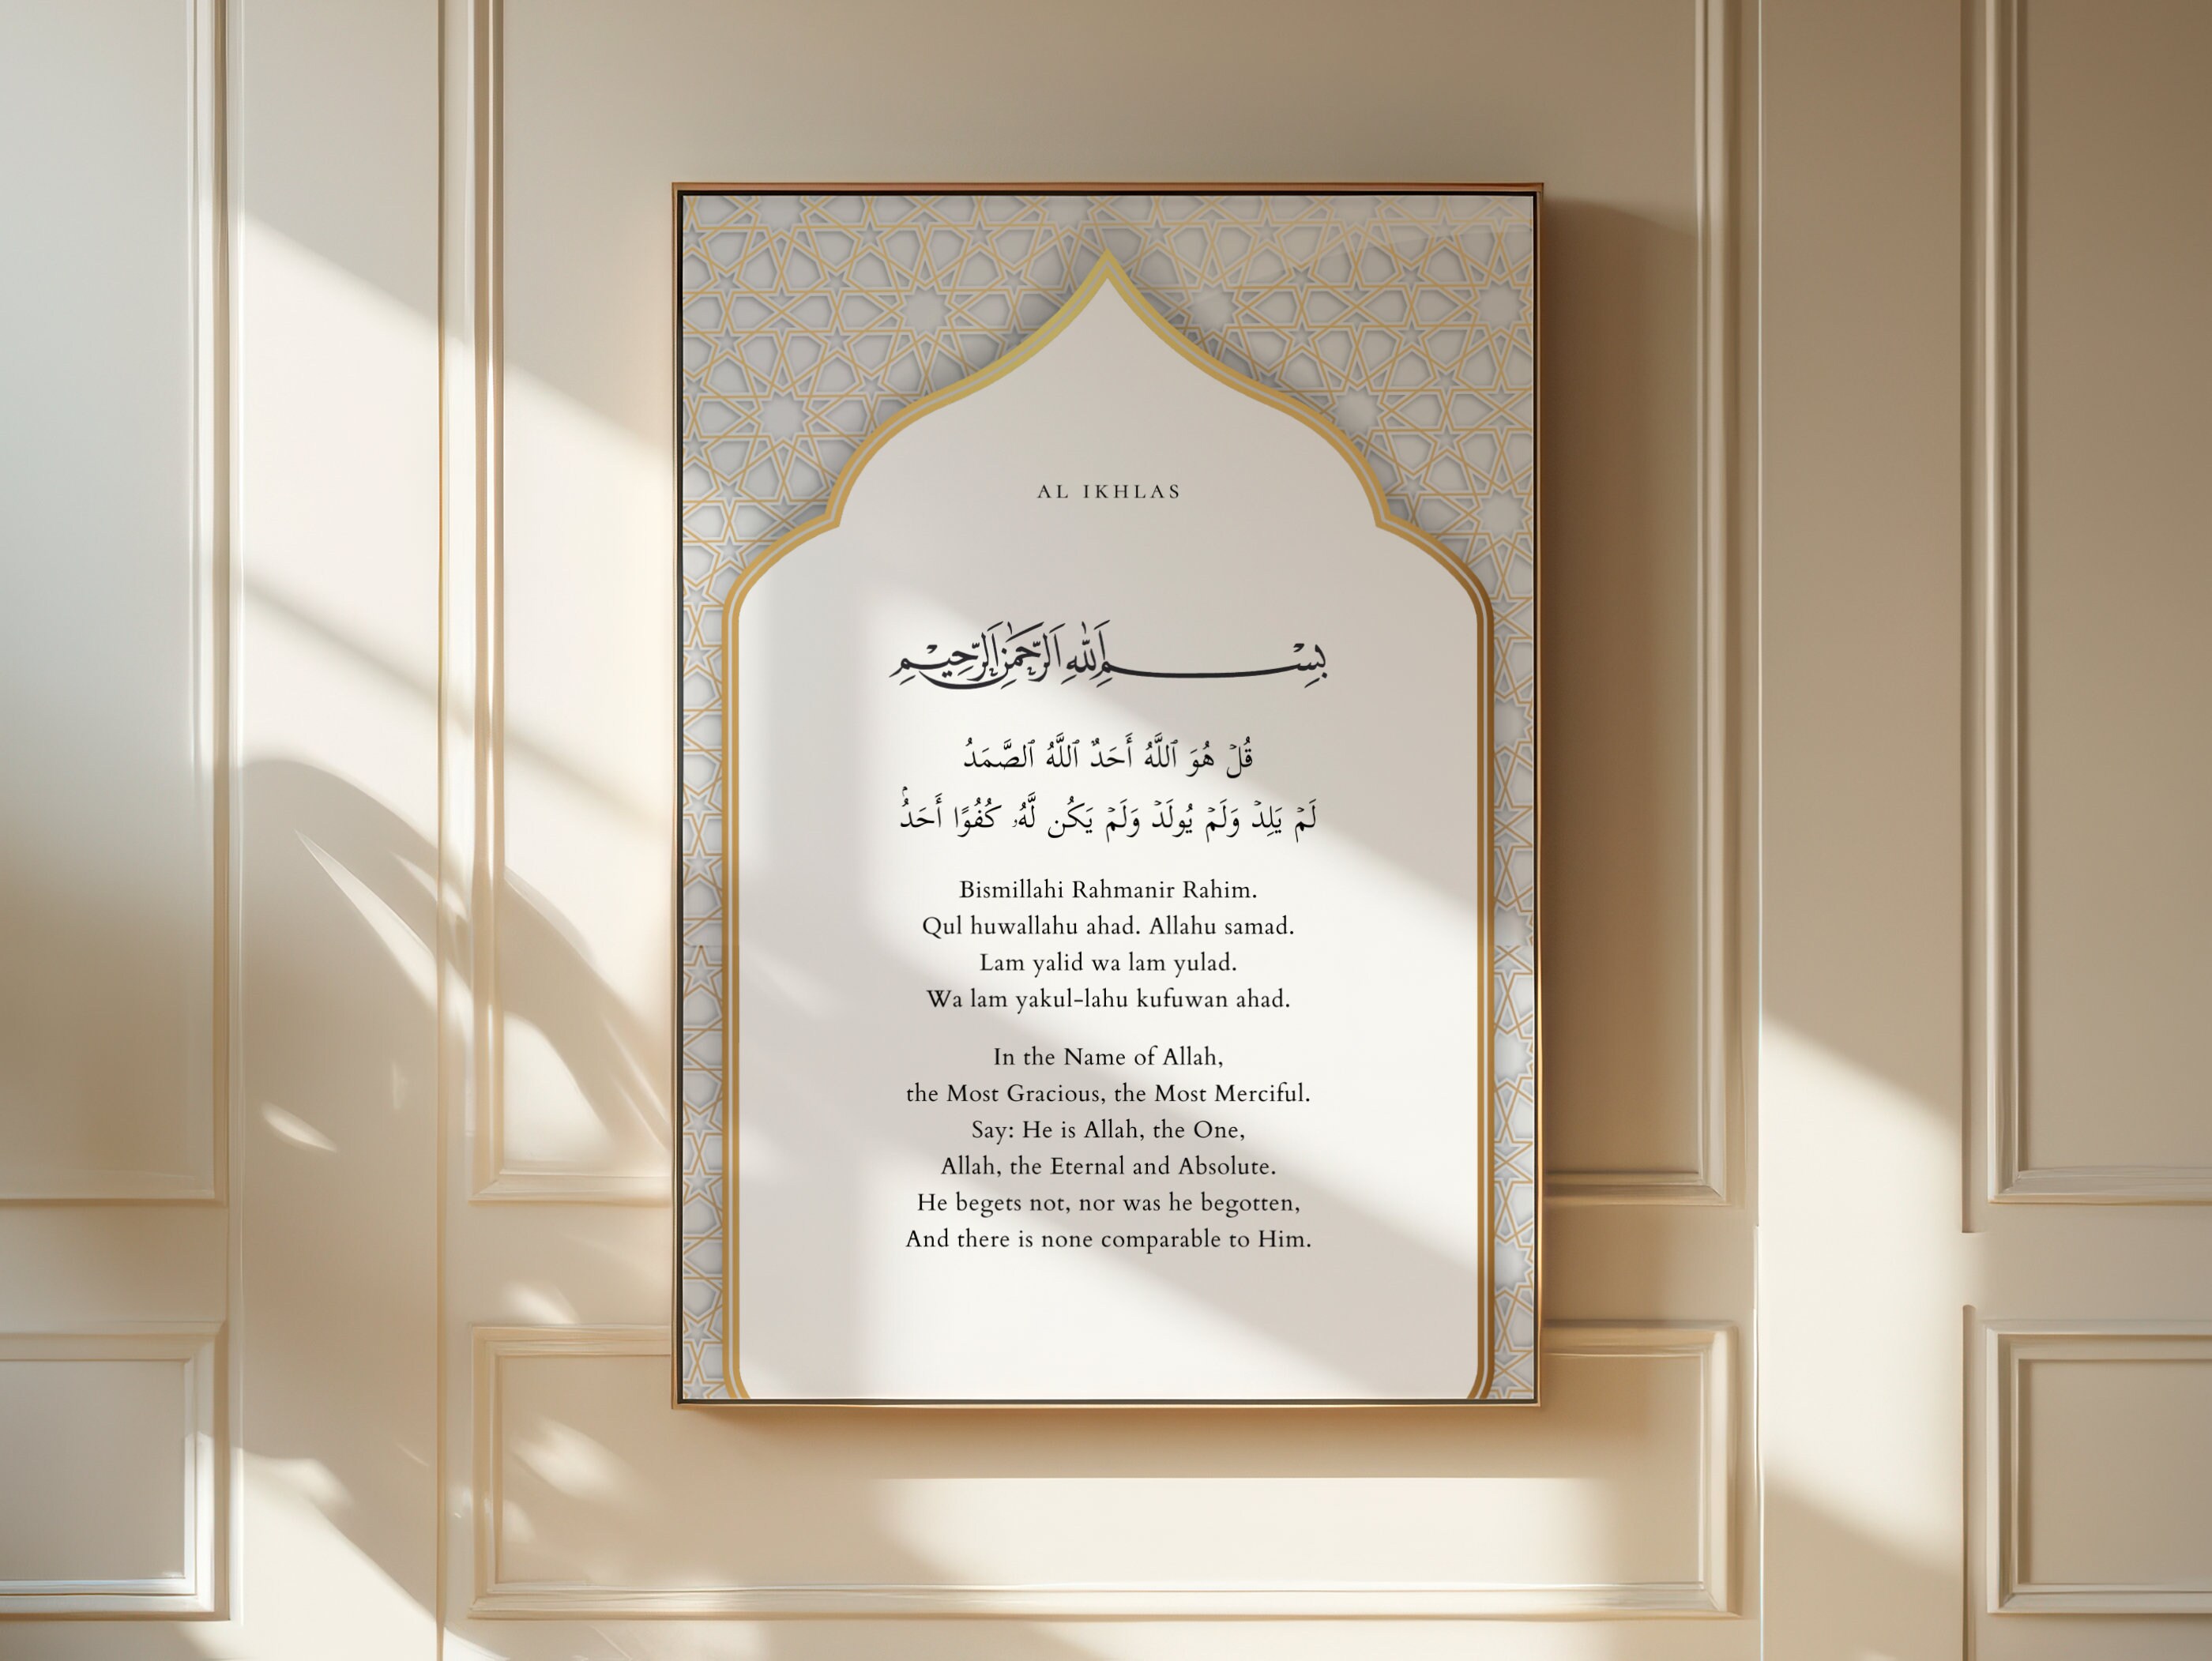 AL IKHLAS
بِسْمِ اللهِ الرَّحْمٰنِ الرَّحِيْمِ
قُلۡ هُوَ ٱللَّهُ أَحَدٌ ٱللَّهُ ٱلصَّمَدُ
لَمۡ يَلِدۡ وَلَمۡ يُولَدۡ وَلَمۡ يَكُن لَّهُۥ كُفُوًا أَحَدُۢ
Bismillahi Rahmanir Rahim.
Qul huwallahu ahad. Allahu samad.
Lam yalid wa lam yulad.
Wa lam yakul-lahu kufuwan ahad.
In the Name of Allah,
the Most Gracious, the Most Merciful.
Say: He is Allah, the One,
Allah, the Eternal and Absolute.
He begets not, nor was he begotten,
And there is none comparable to Him.